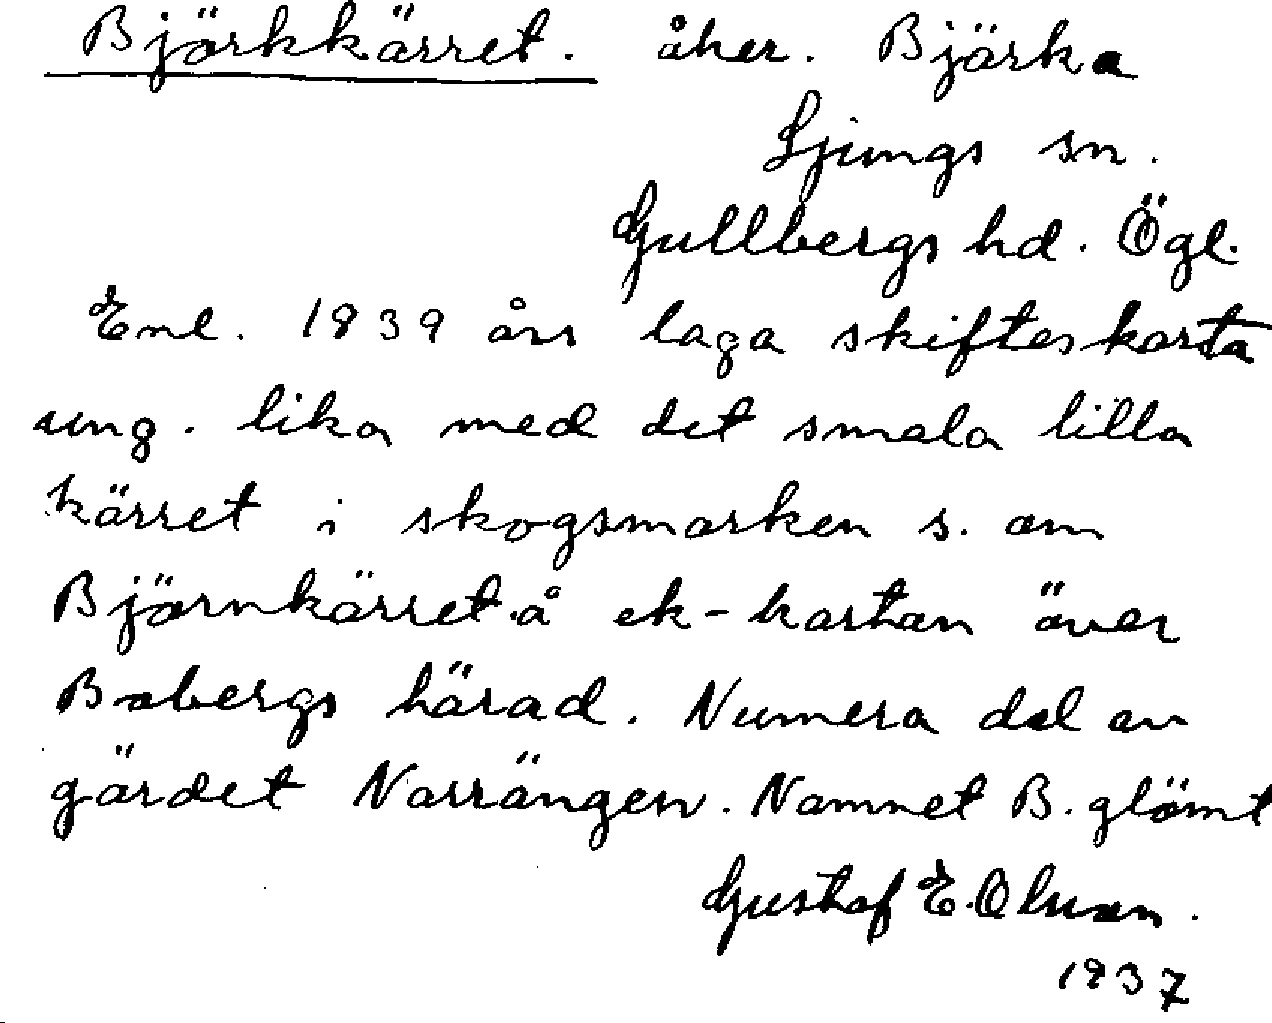 Björkkärret. åker. Bjärka
Ljungs sn.
Gullbergs hd. Ögl.
Enl. 1839 års laga skifteskarta
ung. lika med det smala lilla
kärret i skogsmarken s. om
Björnkärret å ek-kartan över
Bobergs härad. Numera del av
gärdet Norrängen. Namnet B. glömt
Gustaf E. Olsson.
1937